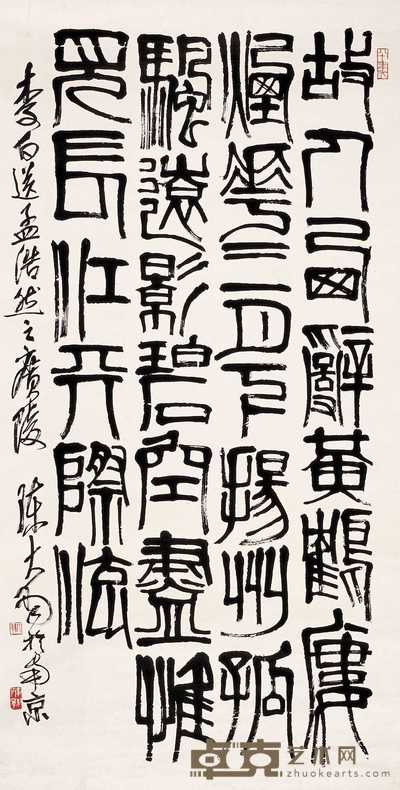 故人西辭黃鶴廔
煙華三月下揚州孤
颿遠影碧空盡惟
見長江天際流
李白送孟浩然之廣陵 陳大羽於南京
卓克艺术网
zhuokearts.com